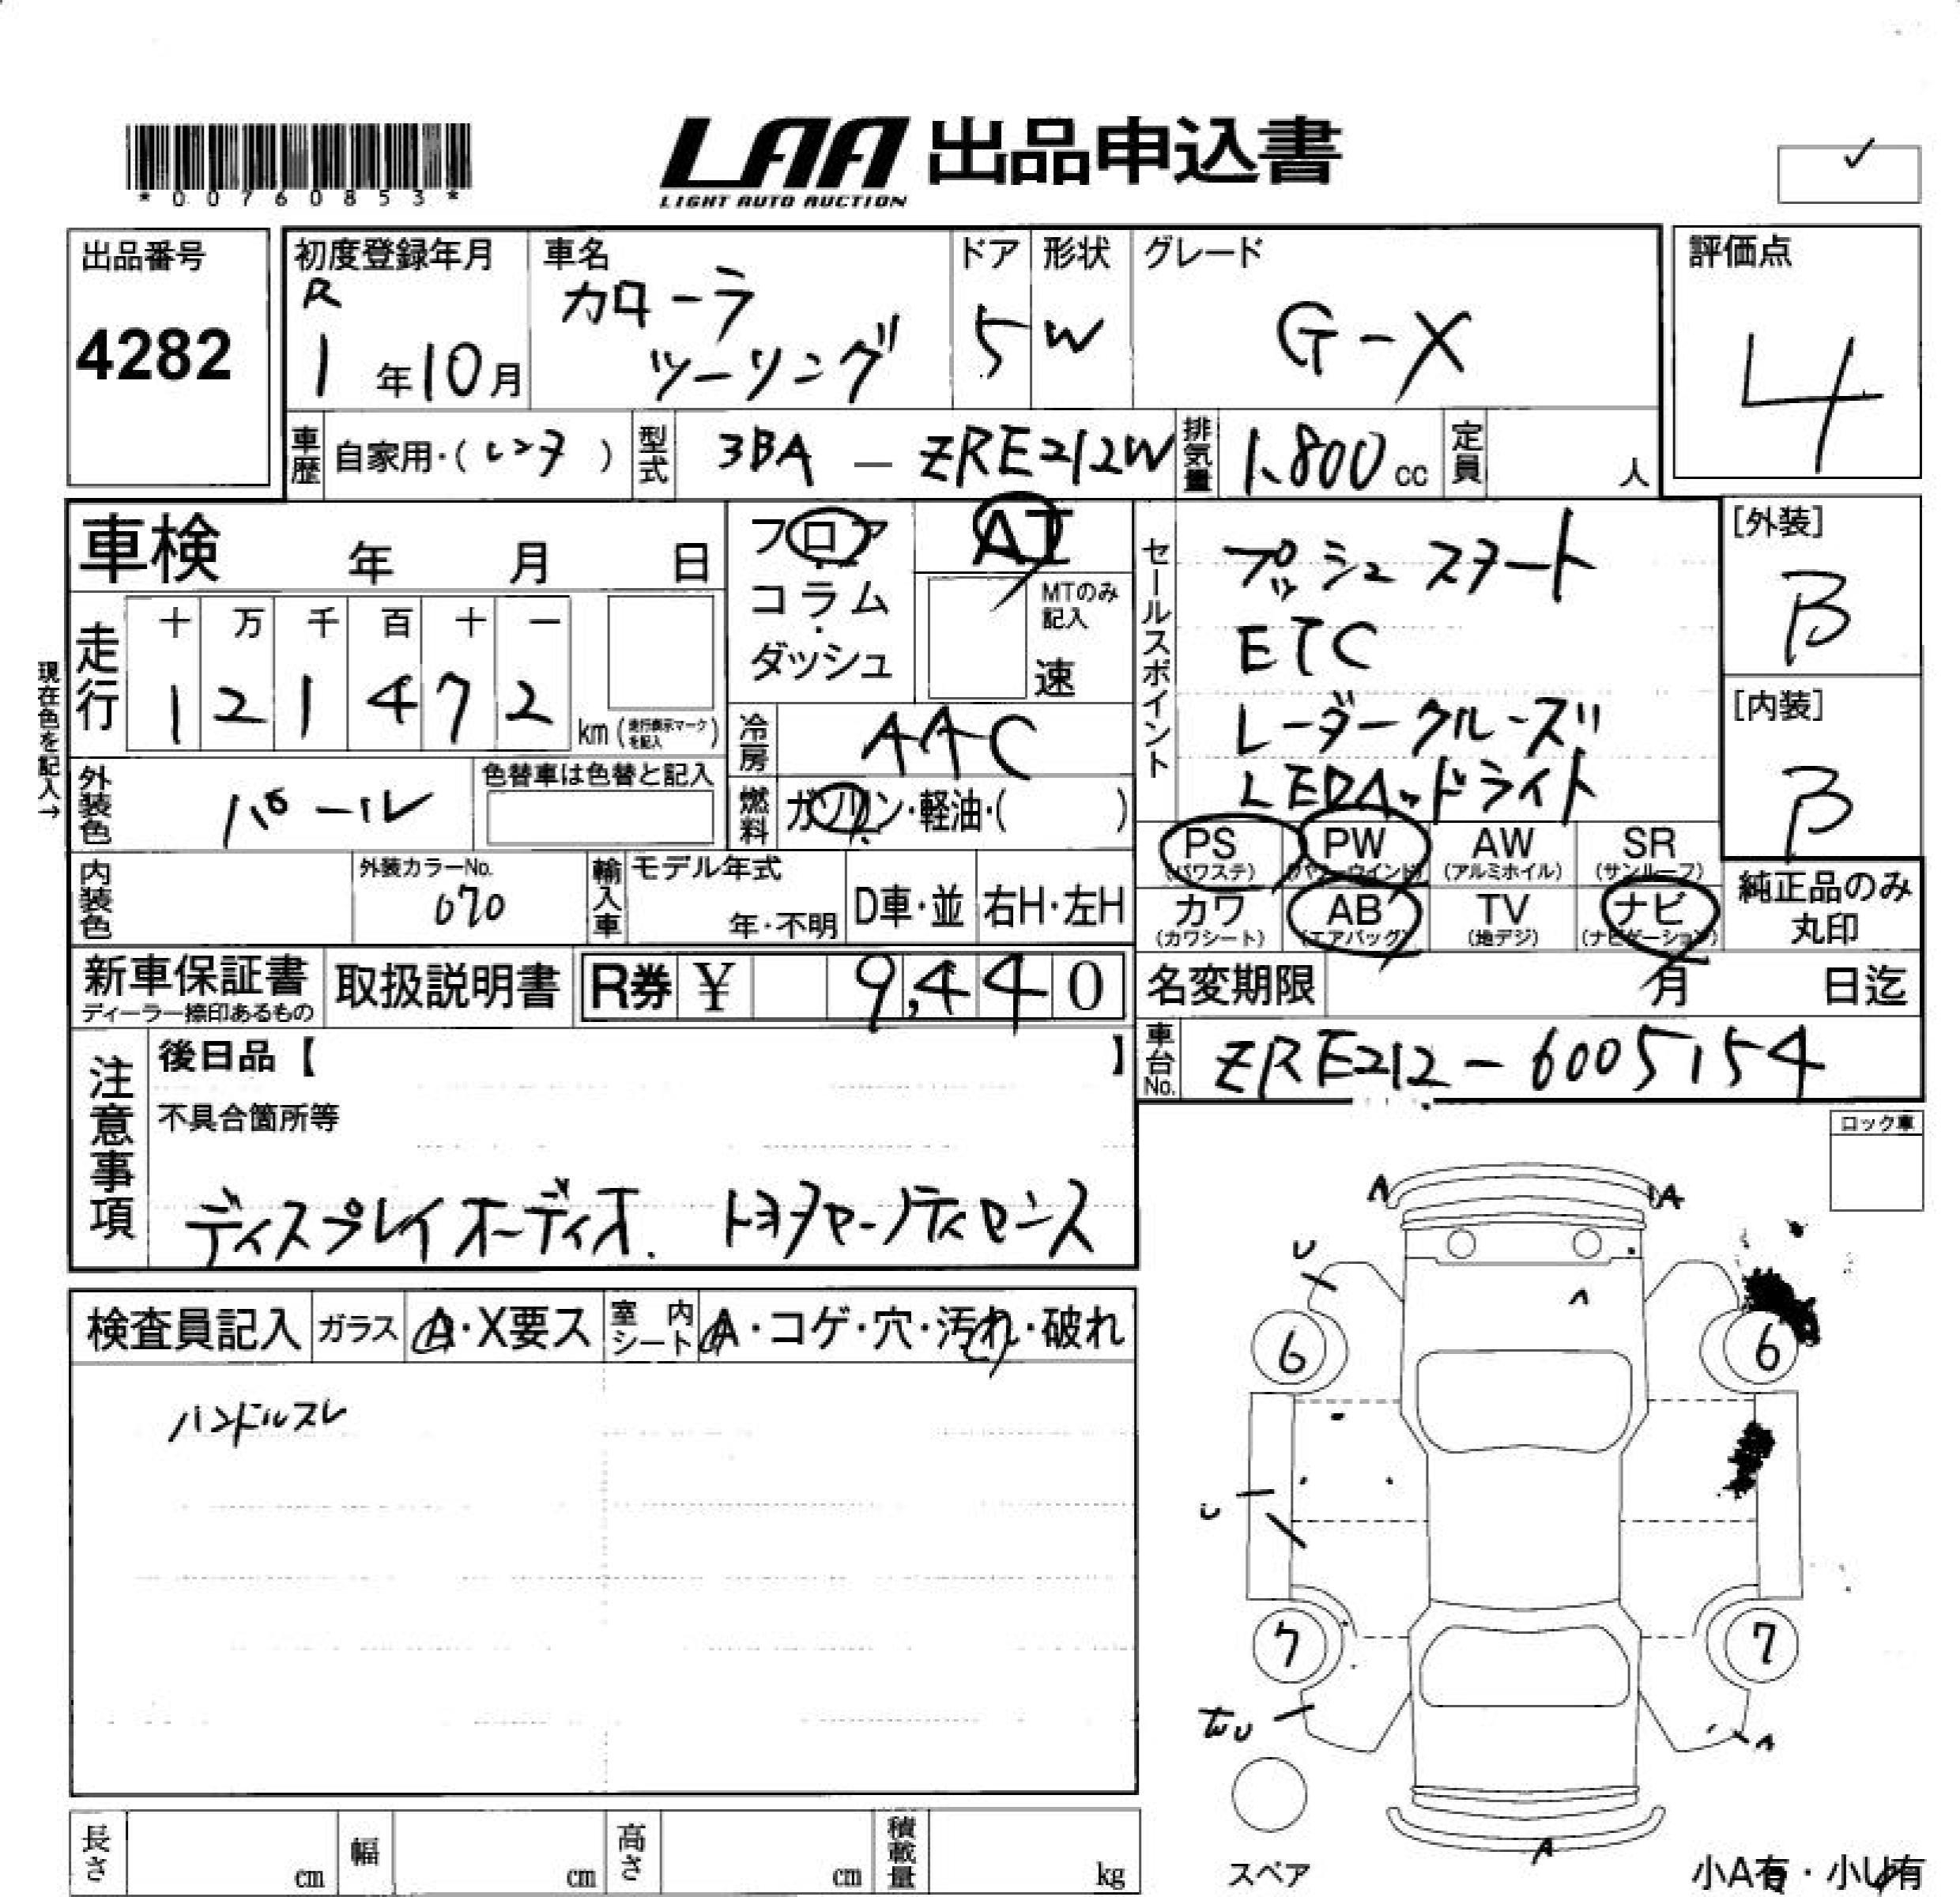 *00760853*
LAA 出品申込書
LIGHT AUTO AUCTION
✓
出品番号
4282
初度登録年月
R
1 年 10 月
車名
カローラ
ツーリング
ドア
5
形状
W
グレード
G-X
評価点
4
車歴 自家用・(レンタ)
型式 3BA - ZRE212W
排気量 1,800 cc
定員 人
車検 年 月 日
走行
十 万 千 百 十 一
1 2 1 4 7 2 km (走行表示マークを記入)
現在色を記入→
外装色 パール
色替車は色替と記入
内装色
外装カラーNo.
070
輸入車
モデル年式
年・不明
D車・並
右H・左H
フロア
コラム
・
ダッシュ
AT
MTのみ
記入
速
冷房 AAC
燃料 ガソリン・軽油・( )
セールスポイント
プッシュスタート
ETC
レーダークルーズ
LEDヘッドライト
[外装]
B
[内装]
B
PS (パワステ)
PW (パワーウインド)
AW (アルミホイル)
SR (サンルーフ)
カワ (カワシート)
AB (エアバッグ)
TV (地デジ)
ナビ (ナビゲーション)
純正品のみ
丸印
新車保証書
ディーラー捺印あるもの
取扱説明書
R券 ¥ 9,440
名変期限 月 日迄
車台No. ZRE212-6005154
注意事項
後日品【 】
不具合箇所等
ディスプレイオーディオ. トヨタセーフティセンス
検査員記入
ガラス A・X要ス
室内シート A・コゲ・穴・汚れ・破れ
ハンドルスレ
ロック車
A A
U
A
6 6
U
7 7
U
A
A
スペア
小A有・小U有
長さ cm
幅 cm
高さ cm
積載量 kg